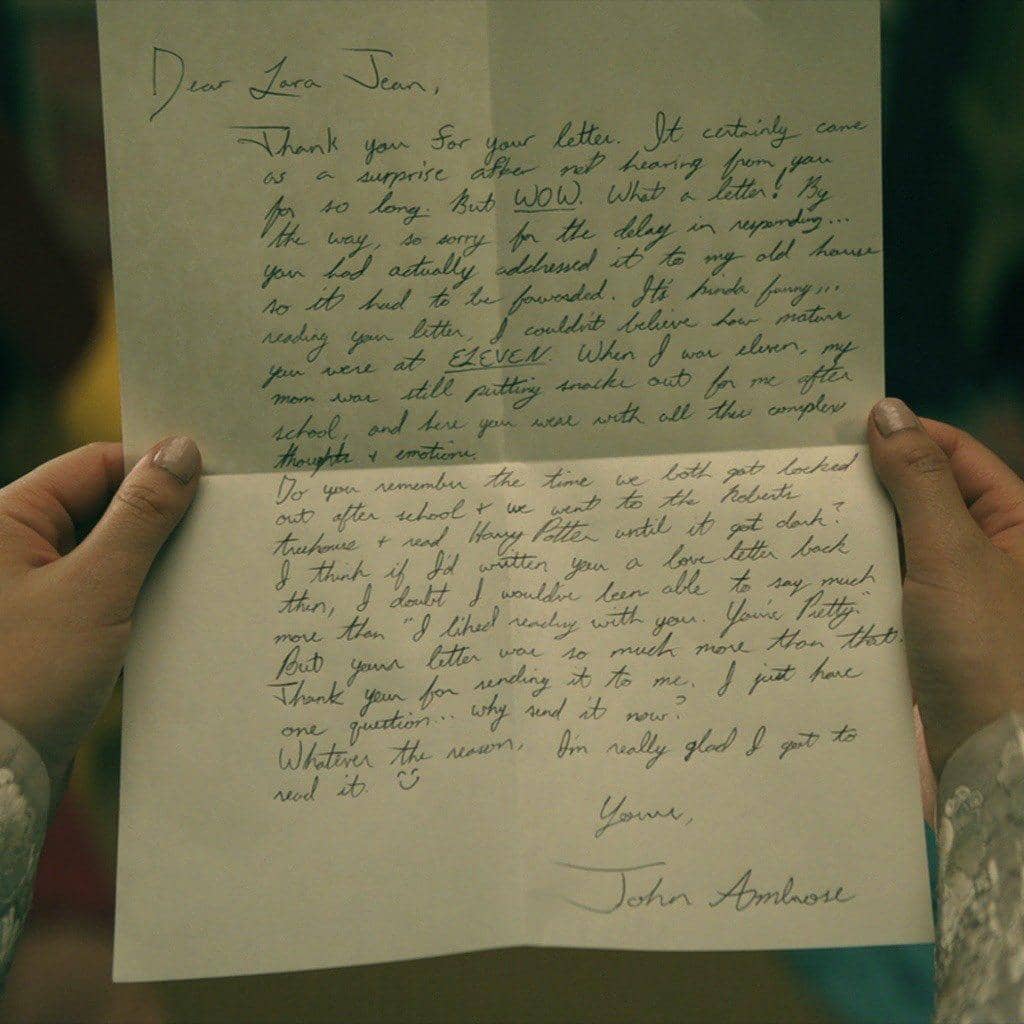 Dear Lara Jean,
Thank you for your letter. It certainly came
as a surprise after not hearing from you
for so long. But WOW. What a letter! By
the way, so sorry for the delay in responding...
you had actually addressed it to my old house
so it had to be forwarded. It's kinda funny...
reading your letter, I couldn't believe how mature
you were at ELEVEN. When I was eleven, my
mom was still putting snacks out for me after
school, and here you were with all these complex
thoughts + emotions.
Do you remember the time we both got locked
out after school + we went to the Roberts
treehouse + read Harry Potter until it got dark?
I think if I'd written you a love letter back
then, I doubt I would've been able to say much
more than "I liked reading with you. You're Pretty."
But your letter was so much more than that.
Thank you for sending it to me. I just have
one question... why send it now?
Whatever the reason, I'm really glad I got to
read it. :)
Yours,
John Ambrose